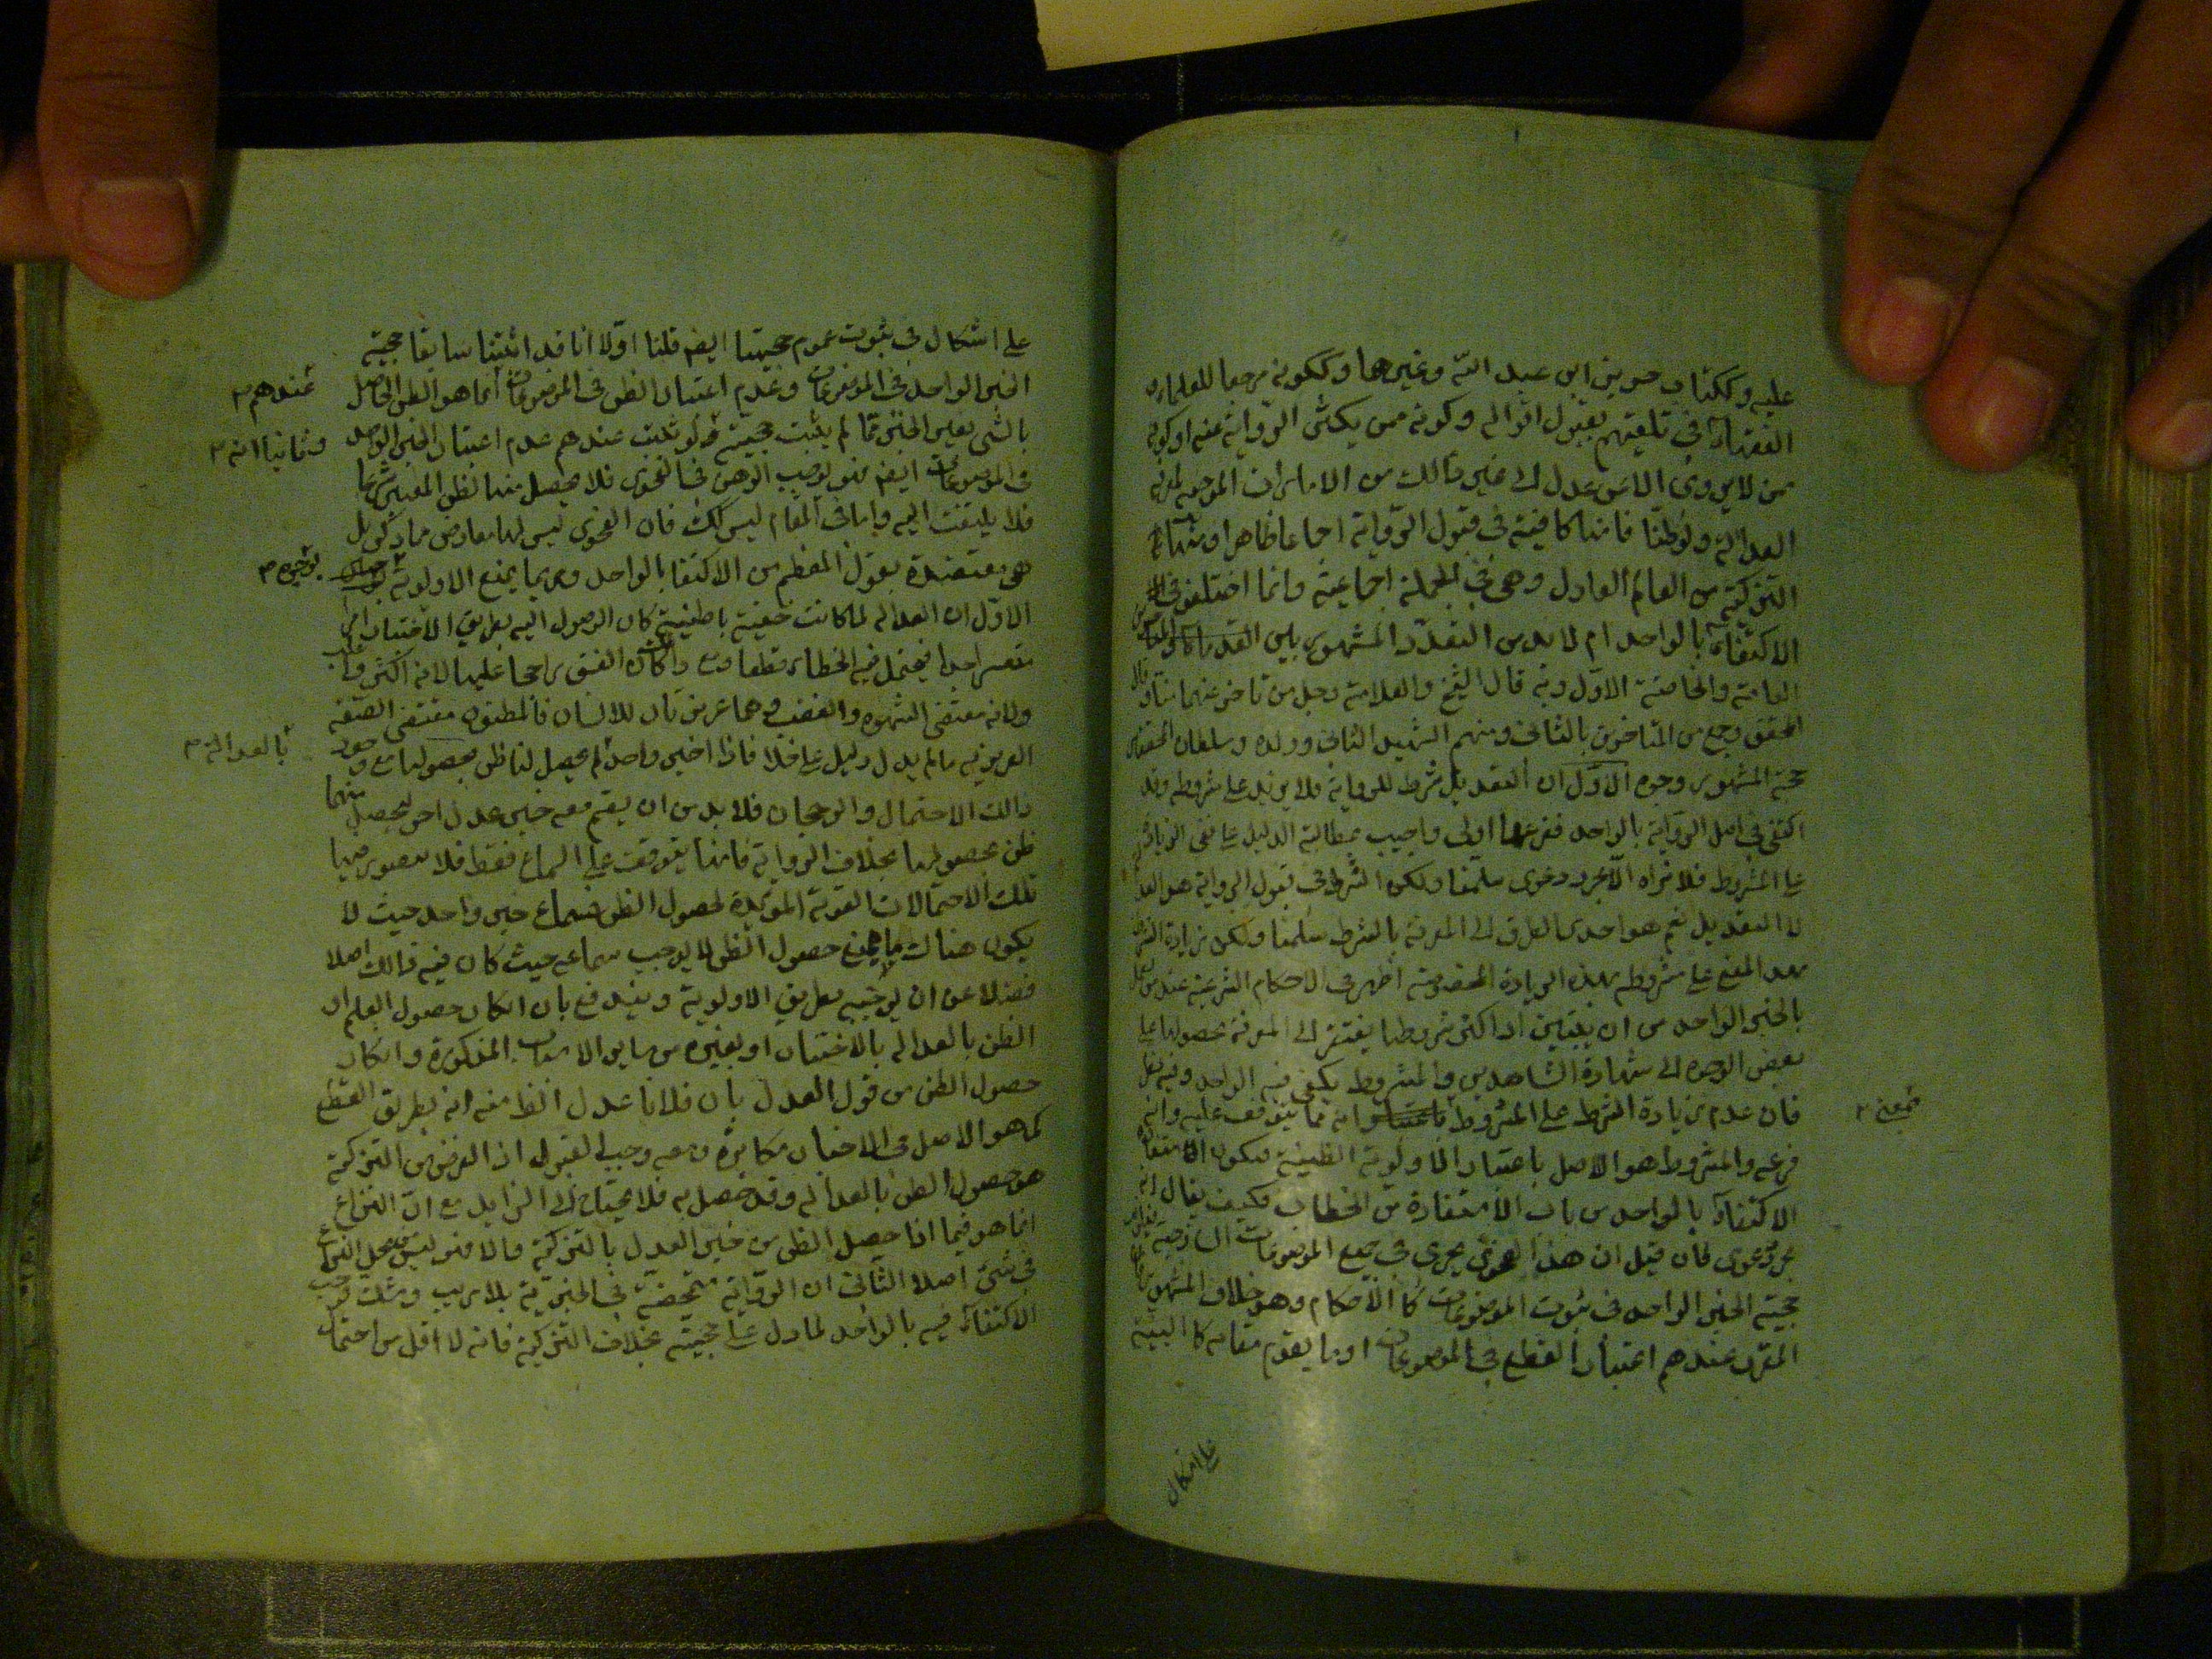 عليه وككتاب حريز بن ابي عبد الله وغيرها وككونه مرجعا للعلماء و
الفقهاء في تلقيهم بقبول اقواله وكونه ممن يكثر الرواية عنه او كونه
ممن لا يروى الا عن عدل الى غير ذالك من الامارات الموجبه لمعرفة
العدالة ولو ظنا فانها كافية في قبول الرواية اجماعا ظاهرا ومنها
التزكية من العالم العادل وهى في الجملة اجماعية وانما اختلفوا في
الاكتفاء بالواحد ام لا بد من التعدد المشهور بين القدماء
العامة والخاصة الاول وبه قال الشيخ والعلامة وجل من تاخر عنهما وقال
المحقق وجمع من المتاخرين بالثاني ومنهم الشهيد الثاني وولده وسلطان المحققين
حجة المشهور وجوه الاول ان التعديل شرط للرواية فلا يزيد على مشروطه وقد
اكتفى في اصل الرواية بالواحد ففرعها اولى واجيب بمطالبة الدليل على نفى الزيادة
على المشروط فلا نراه الا مجرد دعوى سلمنا ولكن الشرط في قبول الرواية هو العدالة
لا التعديل نعم هو احدى الطرق الى المعرفة بالشرط سلمنا ولكن زيادة الشرط
بهذا المعنى على مشروطه بهذه الزيادة المخصوصة اظهر في الاحكام الشرعية عند من يعمل
بالخبر الواحد من ان يتبين اذ اكثر شروطها يفتقر الى المعرفة بحصولها على
بعض الوجوه الى شهادة الشاهدين والمشروط يكفى فيه الواحد وفيه نظر
فان عدم زيادة الشرط على المشروط بمعنى انه مما يتوقف عليه وانه
فرعه والمشروط هو الاصل باعتبار الاولوية الظنية فيكون استفادة
الاكتفاء بالواحد من باب الاستفادة من الخطاب فكيف يقال انه
مجرد دعوى فان قيل ان هذا الفحوى يجرى في جميع الموضوعات الخارجية
حجية الخبر الواحد في ثبوت الموضوعات كالاحكام وهو خلاف المشهور
المقرر عندهم اعتبار القطع في الموضوعات او ما يقوم مقامه كالبينة
على اشكال
على اشكال في ثبوت عموم حجيتها ايضا قلنا اولا انا قد اثبتنا سابقا حجية
الخبر الواحد في الموضوعات وعدم اعتبار الظن في الموضوعات عندهم انما هو الظن الحاصل
بالشى بغير الخبر مما لم يثبت حجيته وثانيا انه لو ثبت عندهم عدم اعتبار الخبر الواحد
في الموضوعات ايضا فهو يوجب الوهن في الفحوى فلا يحصل منها الظن المعتبر شرعا
فلا يلتفت اليه واما في المقام ليس كك فان الفحوى ليس لها معارض مما ذكر بل
هى معتضدة بقول المعظم من الاكتفا بالواحد وربما يمنع الاولوية بوجوه
الاول ان العدالة لما كانت خفية باطنية كان الوصول اليه بطريق الاختبار امرا
متعسرا جدا فيحتمل فيه الخطاء قطعا وكان الفسق راجحا عليها لانه اكثر
ولانه مقتضى الشهوة والغضب وهما غريزتان للانسان فالمظنون مقتضى الصفة
الغريزية ما لم يدل دليل على خلافه فاذا اخبر واحد بالعدالة لم يحصل لنا ظن بحصولها مع وجود
ذالك الاحتمال والرجحان فلا بد من ان يضم معه خبر عدل اخر ليحصل منهما
ظن بحصولها بخلاف الرواية فانها يتوقف على السماع فقط فلا يتصور فيها
تلك الاحتمالات القوية المؤكدة لحصول الظن بسماع خبر واحد حيث لا
يكون هناك ما يمنع حصول الظن لا يوجب سماعه حيث كان فيه ذالك اصلا
فضلا عن ان يوجبه بطريق الاولوية ويندفع بان امكان حصول العلم او
الظن بالعدالة بالاختبار او بغيره من ساير الامارات المذكورة وامكان
حصول الظن من قول العدل بان فلانا عدل الظا منه انه بطريق القطع
كما هو الاصل في الاخبار مكابرة ومعه وجب القبول اذ الغرض من التزكية
هو حصول الظن بالعدالة وقد حصل به فلا يحتاج الى الزايد مع ان النزاع
انما هو فيما اذا حصل الظن من خبر العدل بالتزكية والا فهو ليس من محل النزاع
في شئ اصلا الثاني ان الرواية متمحضة في الخبرية بلا ريب وشك فوجب
الاكتفاء فيه بالواحد لما دل على حجيته بخلاف التزكية فانه لا اقل من احتمال